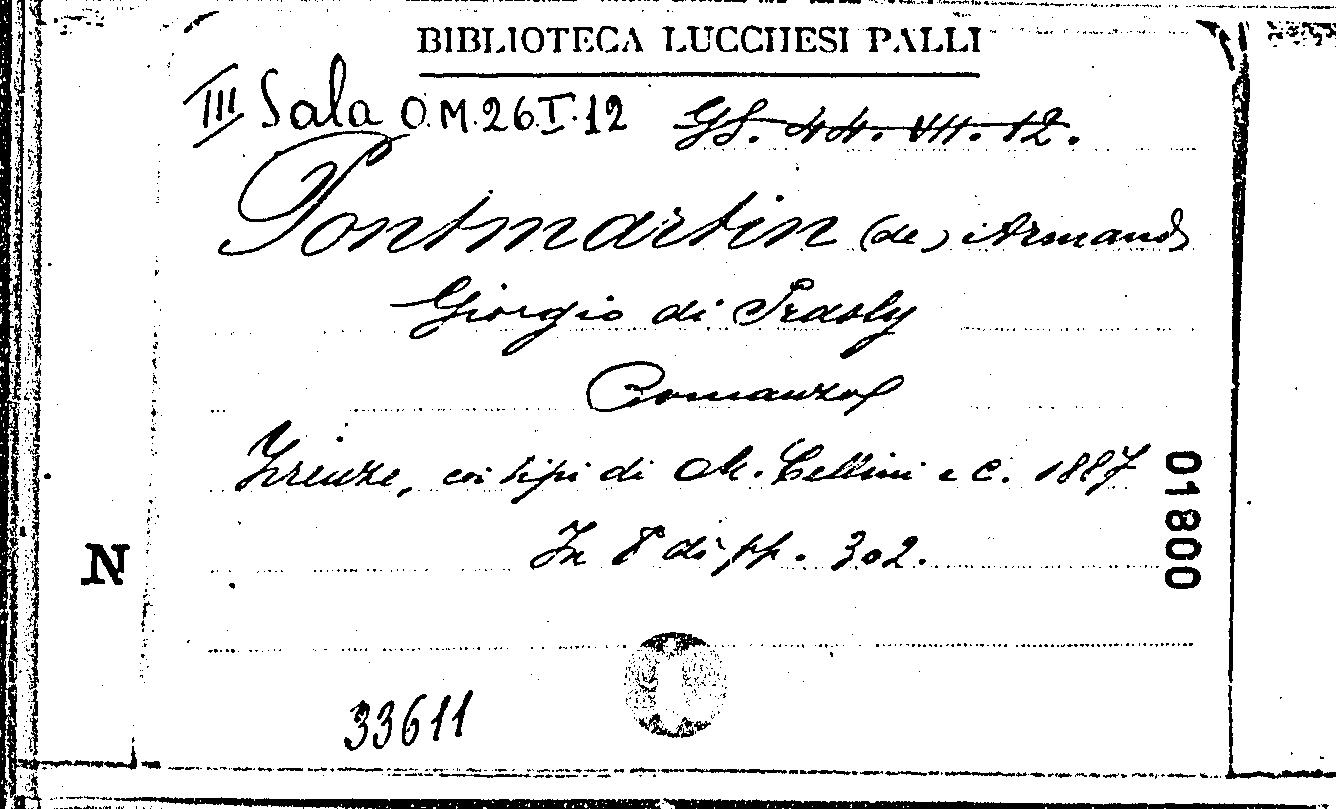 BIBLIOTECA LUCCHESI PALLI
III Sala O.M.26.I.12 GS. 44. VII. 12.
Pontmartin (de) Armand
Giorgio di Prasly
Romanzo
Firenze, coi tipi di M. Cellini e C. 1887
In 8° di pp. 302.
N
01800
33611